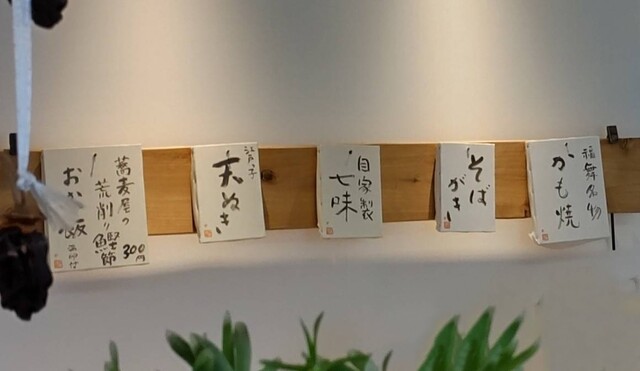 福舞名物
かも焼
そば
がき
自家製
七味
天ぬき
蕎麦屋の
荒削り鰹節
300円
おかか飯